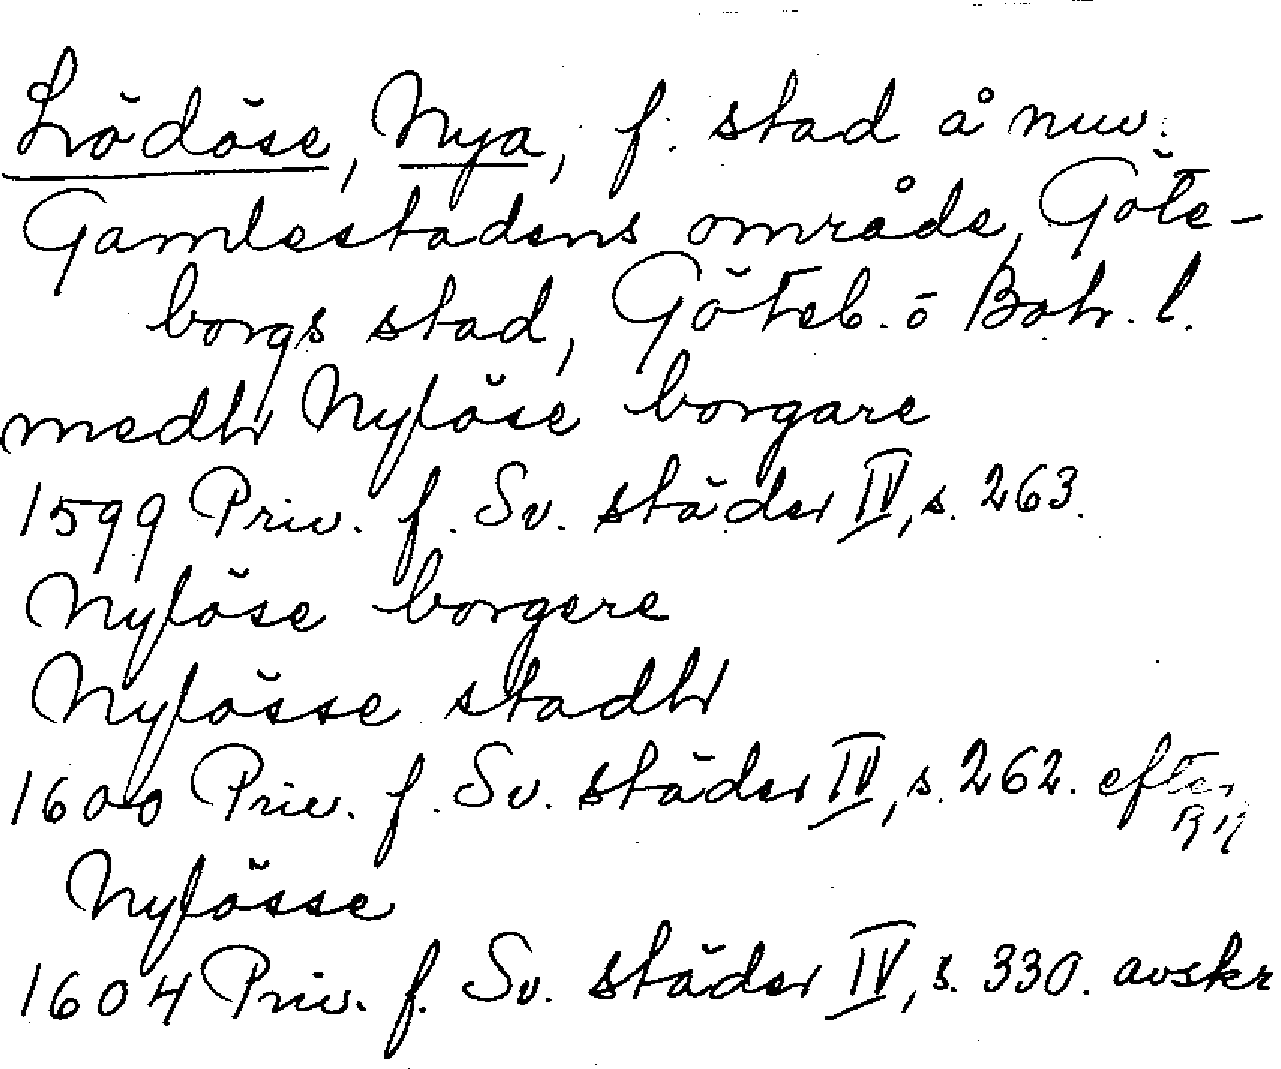 Lödöse, Nya, f. stad å nuv.
Gamlestadens område, Göte-
borgs stad, Göteb. o Boh. l.
medh Nylöse borgare
1599 Priv. f. Sv. städer IV, s. 263.
Nylöse borgere
Nylösse stadh
1600 Priv. f. Sv. städer IV, s. 262. efter
Nylösse
1604 Priv. f. Sv. städer IV, s. 330. avskr